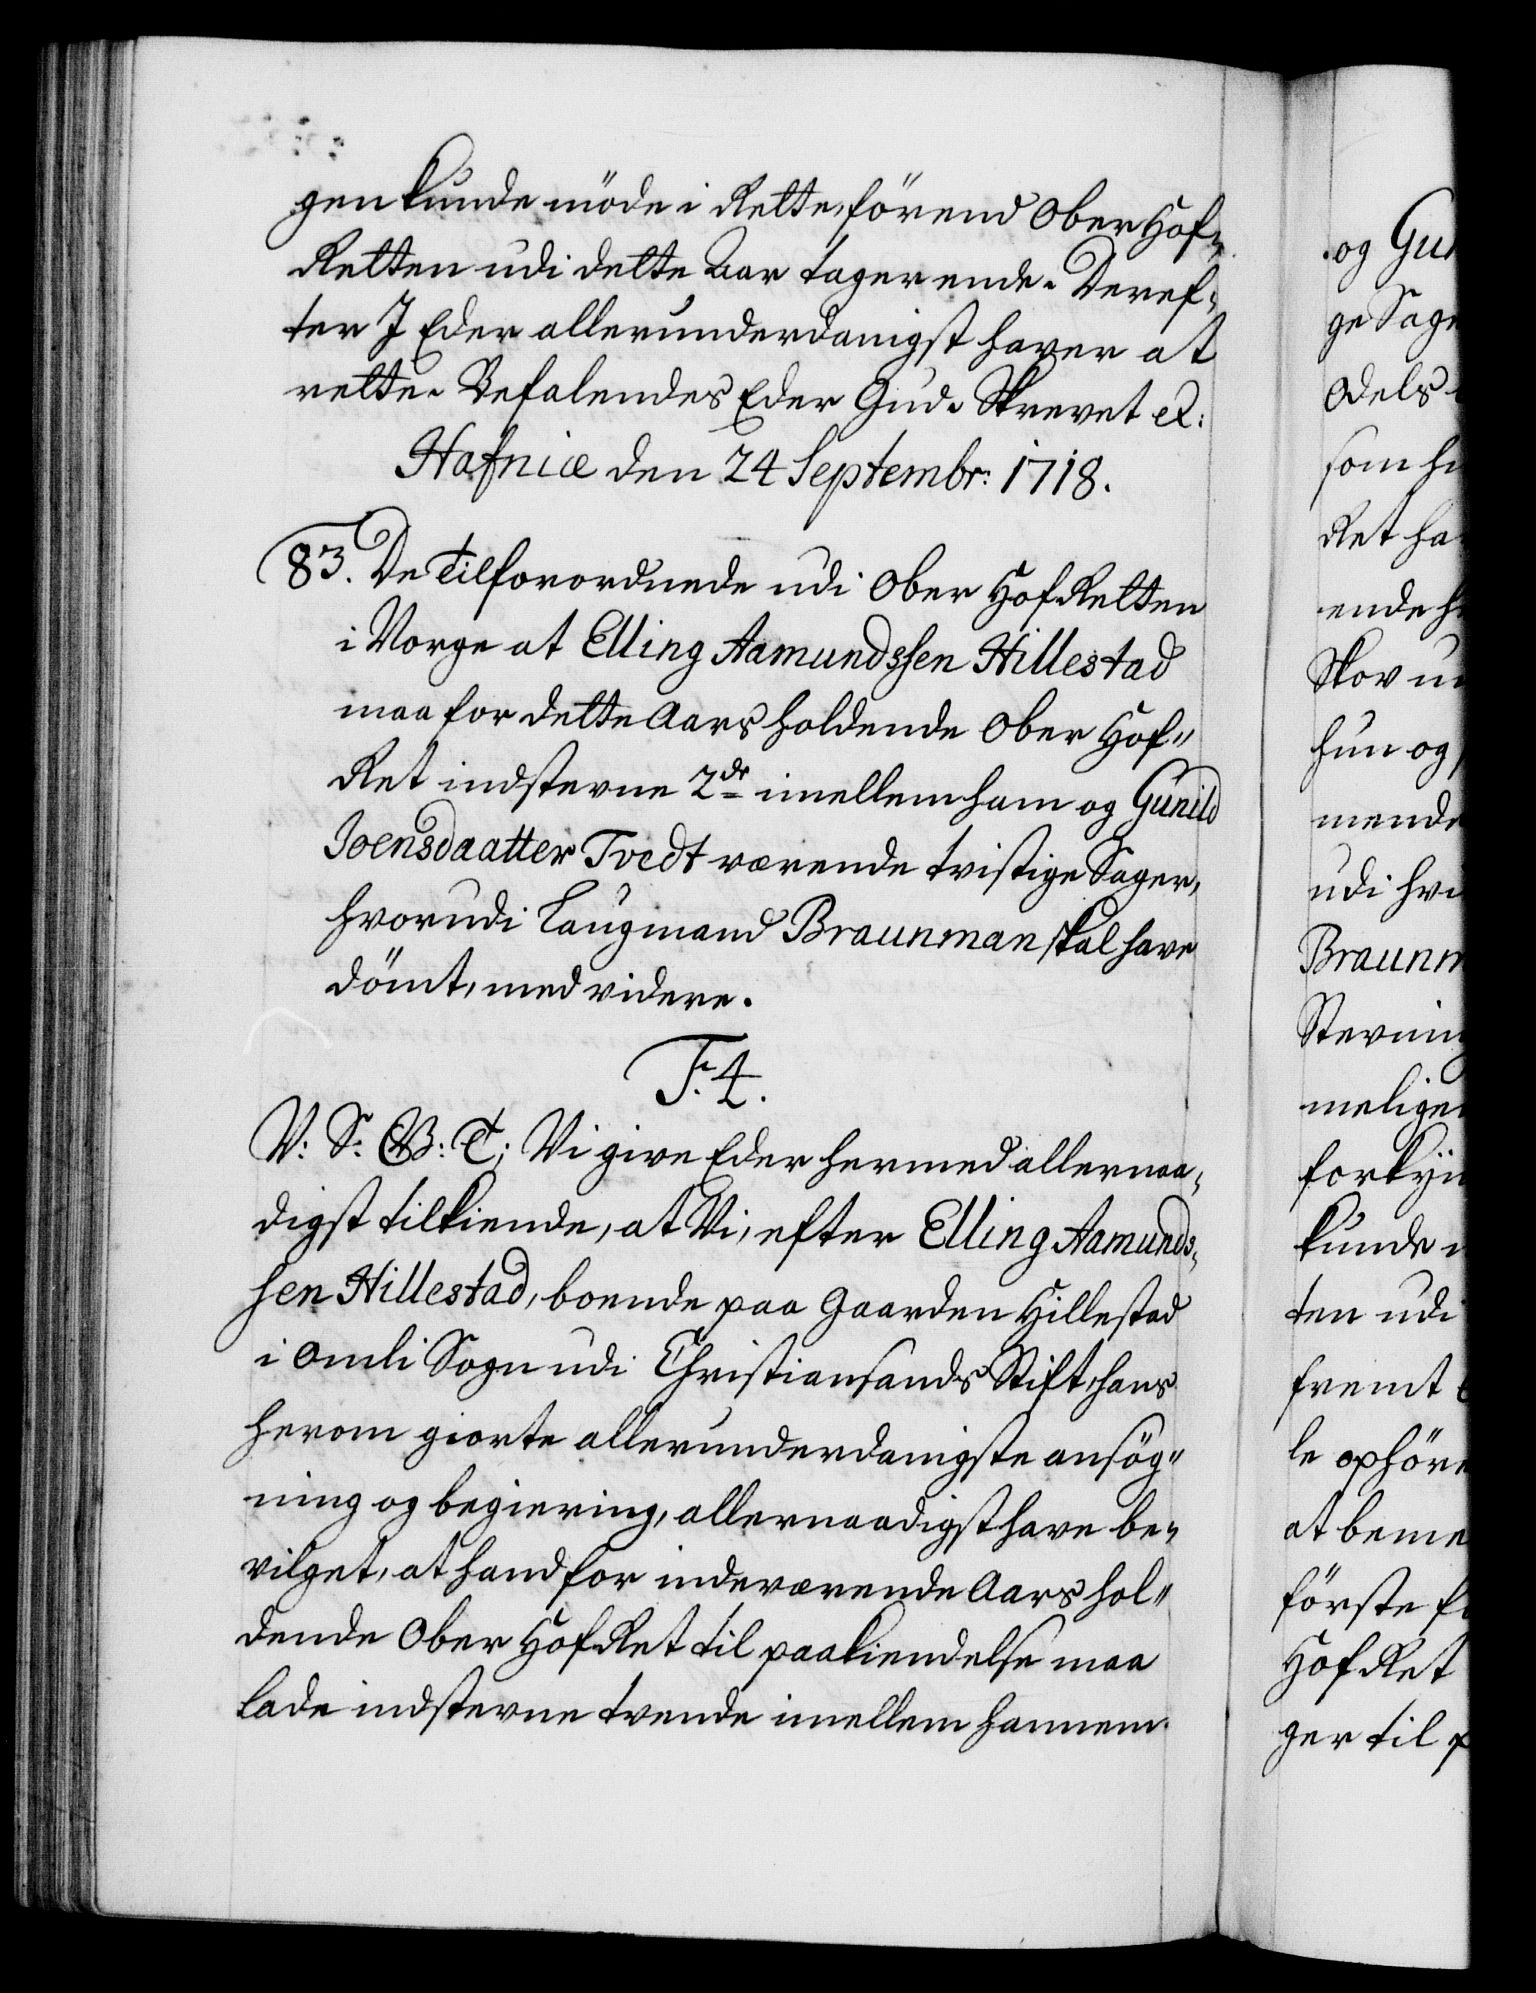 gen kunde möde i Rette, förend Ober Hof-
Retten udi dette Aar tager ende. Deref-
ter I Eder allerunderdanigst haver at
rette. Befalendes Eder Gud. Skrevet etc:
Hafniæ den 24 Septembr: 1718.
83. De Tilforordnede udi Ober Hof Retten
i Norge at Elling Aamundssen Hillestad
maa for dette Aars holdende Ober Hof-
Ret indstevne 2de imellem ham og Gunild
Joensdaatter Tvedt værende tvistige Sager,
hvorudi Laugmand Braunman skal have
dömt, med videre.
F. 4.
V: S: G B: T: Vi give Eder hermed allernaa-
digst tilkiende, at Vi, efter Elling Aamunds-
sen Hillestad, boende paa Gaarden Hillestad
i Omli Sogn udi Christiansands Stift, hans
herom giorte allerunderdanigste ansög-
ning og begiering, allernaadigst have be-
vilget, at hand for indeværende Aars hol-
dende Ober Hof Ret til paakiendelse maa
lade indstevne tvende imellem hannem
og Gun
ge Sage
Odels
som h
Ret ha
ende h
Skov u
hun og
mende
udi hv
Braunm
Stevning
meligen
forkyn
kunde
ten udi
fremt
le ophöre
at beme
förste f
Hof Ret
ger til p